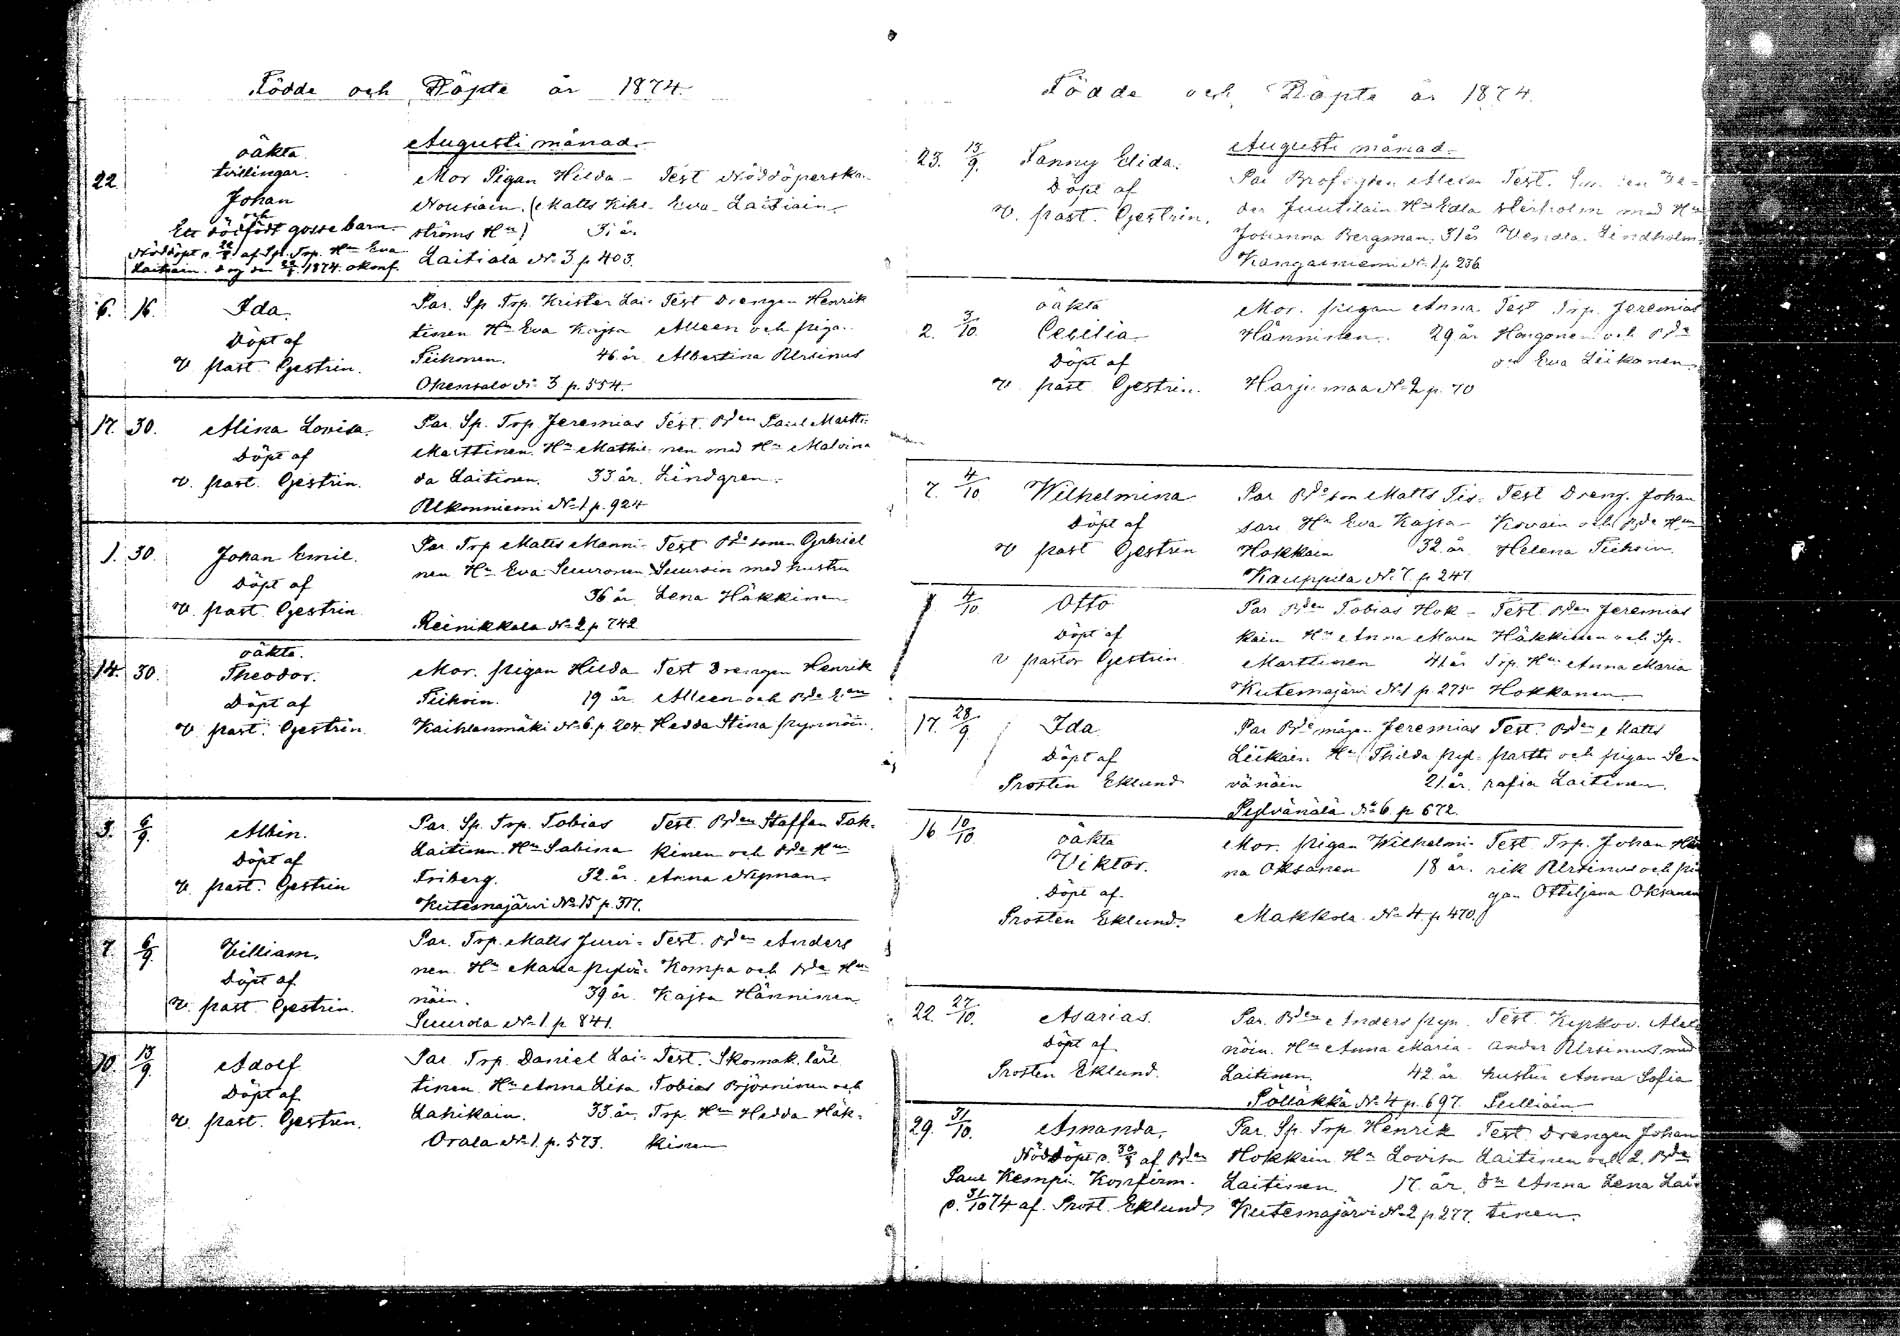 Födde och Döpte år 1874.
Augusti månad.
22.
oäkta
tvillingar.
Johan
och
Ett dödfödt gossebarn.
Nöddöpt d. 22/8 af Sp. Trp. Hu Eva
Laitiain. dog den 1874. okonf.
Mor Pigan Hilda
Nousiain. (Matts Kihl-
ströms Hu) 31 år
Laitiala No 3 p 403.
Test Nöddöperska
Eva Laitiain
6. 16. Ida.
Döpt af
v past Gestrin.
Par. Sp Trp. Krister Lai-
tinen Hu Eva Kajsa
Tiihonen. 46 år
Okensalo No 3 p. 554.
Test Drengen Henrik
Alleen och piga
Albertina Ursinus
17. 30. Alina Lovisa.
Döpt af
v. past. Gestrin.
Par. Sp. Trp Jeremias
Marttinen. Hu Mathil-
da Laitinen. 33 år.
Ukonniemi No 1 p. 924
Test. Bden Paul Martti-
nen med Hu Malvina
Lindgren.
1. 30. Johan Emil.
Döpt af
v. past. Gestrin
Par. Trp Matts Manni-
nen Hu Eva Suuronen
36 år
Reinikkala No 2 p 742
Test Bde sonen Gabriel
Suuroin med hustru
Lena Häkkinen
14. 30. oäkta.
Theodor.
Döpt af
v. past. Gestrin.
Mor. pigan Hilda
Tiihoin. 19 år
Kaihlanmäki No 6. p. 204.
Test Drengen Henrik
Alleen och Bde
Hedda Stina pynnöin.
3. 6/9. Albin.
Döpt af
v. past. Gestrin
Par. Sp. Trp. Tobias
Laitinen. Hu Sabina
Friberg. 32 år.
Kutemajärvi No 15 p. 317.
Test. Bden Staffan Tak-
kinen och Bde Hun
Anna Nyman.
7. 6/9. William.
Döpt af
v. past Gestrin.
Par. Trp. Matts Jurvi-
nen. Hu Maria pylvä-
näin. 39 år.
Suurola No 1. p 841.
Test. Bden Anders
Kompa och Bde Hu
Kajsa Hänninen
10. 13/9. Adolf
Döpt af
v. past. Gestrin.
Par. Trp. Daniel Lai-
tinen. Hu Anna Lisa
Lahikain. 33 år.
Orala No 1. p. 573.
Test. Skomak. lärl.
Tobias Björninen och
Trp. Hu Hedda Häk-
kinen
Födde och Döpte år 1874.
Augusti månad.
23. 13/9. Fanny Elida.
Döpt af
v. past. Gestrin.
Par Alexan-
der Juutilain Hu Edla
Johanna Bergman. 31 år
Kangasniemi No 1 p 236
Test.
med Hu
Venda Lindholm.
2. 3/10 oäkta
Cecilia
Döpt af
v. past Gestrin.
Mor. pigan Anna
Hänninen. 29 år
Harjumaa No 2 p. 70
Test Trp. Jeremias
Hongonen och Bde
Eva Liikanen.
7. 4/10. Wilhelmina
Döpt af
v past Gestrin
Par Bde son Matts Tis-
sari Hu Eva Kajsa
Hokkain 32 år
Kauppila No 7. p 247
Test Dreng. Johan
Kovain och Bde Hun
Helena Tiihoin.
4/10 Otto
Döpt af
v pastor Gestrin
Par Bden Tobias Hok-
kain Hu Anna Maria
Marttinen 41 år
Kutemajärvi No 1 p 275
Test. Bden Jeremias
Häkkinen och Sp.
Trp. Hu Anna Maria
Hokkanen
17. 28/9. Ida.
Döpt af
Prosten Eklund
Par Bde mågen Jeremias
Liikain Hu Thilda pyl-
vänäin 21 år.
Pylvänälä No 6. p 672.
Test. Bden Matts
partti och pigan Se-
rafia Laitinen.
16 10/10. oäkta
Viktor.
Döpt af
Prosten Eklund.
Mor. pigan Wilhelmi-
na Oksanen 18 år.
Makkola No 4 p 470.
Test Trp. Johan Hen-
rik Ursinus och pi-
gan Ottiljana Oksanen
22. 27/10. Asarias.
Döpt af
Prosten Eklund.
Par. Bden Anders pyn-
nöin. Hu Anna Maria
Laitinen. 42 år
Pölläkkä No 4 p. 697.
Test. Kyrkov. Alex-
ander Ursinus med
hustru Anna Sofia
Pulliäin
29. 31/10. Amanda.
Nöddöpt d. 30/8 af Bden
Paul Kempi. Konfirm.
d. 31/10 74 af. Prost. Eklund
Par. Sp. Trp Henrik
Hokkain Hu Lovisa
Laitinen. 17 år.
Kutemajärvi No 2 p 277.
Test. Drengen Johan
Laitinen och Bde
Anna Lena Lai-
tinen.